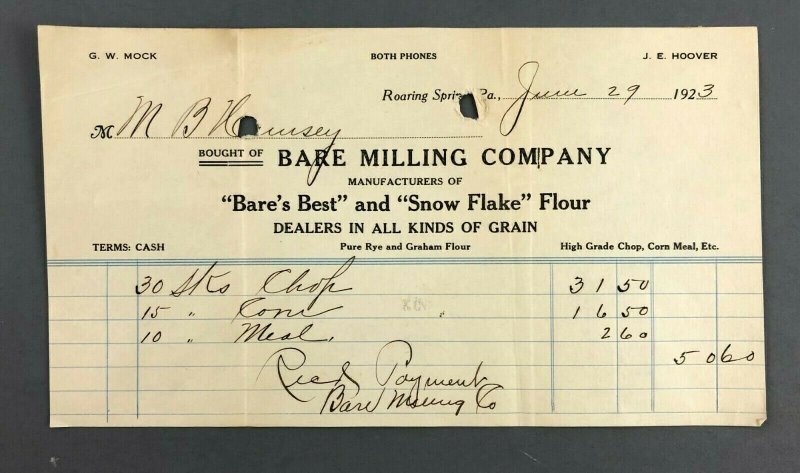 G. W. MOCK BOTH PHONES J. E. HOOVER
Roaring Spring, Pa., June 29 1923
M M B
BOUGHT OF BARE MILLING COMPANY
MANUFACTURERS OF
"Bare's Best" and "Snow Flake" Flour
DEALERS IN ALL KINDS OF GRAIN
TERMS: CASH Pure Rye and Graham Flour High Grade Chop, Corn Meal, Etc.
30 Sks Chop 31 50
15 " Corn " 16 50
10 " Meal. 2 60
50 60
Recd Payment
Bare Milling Co